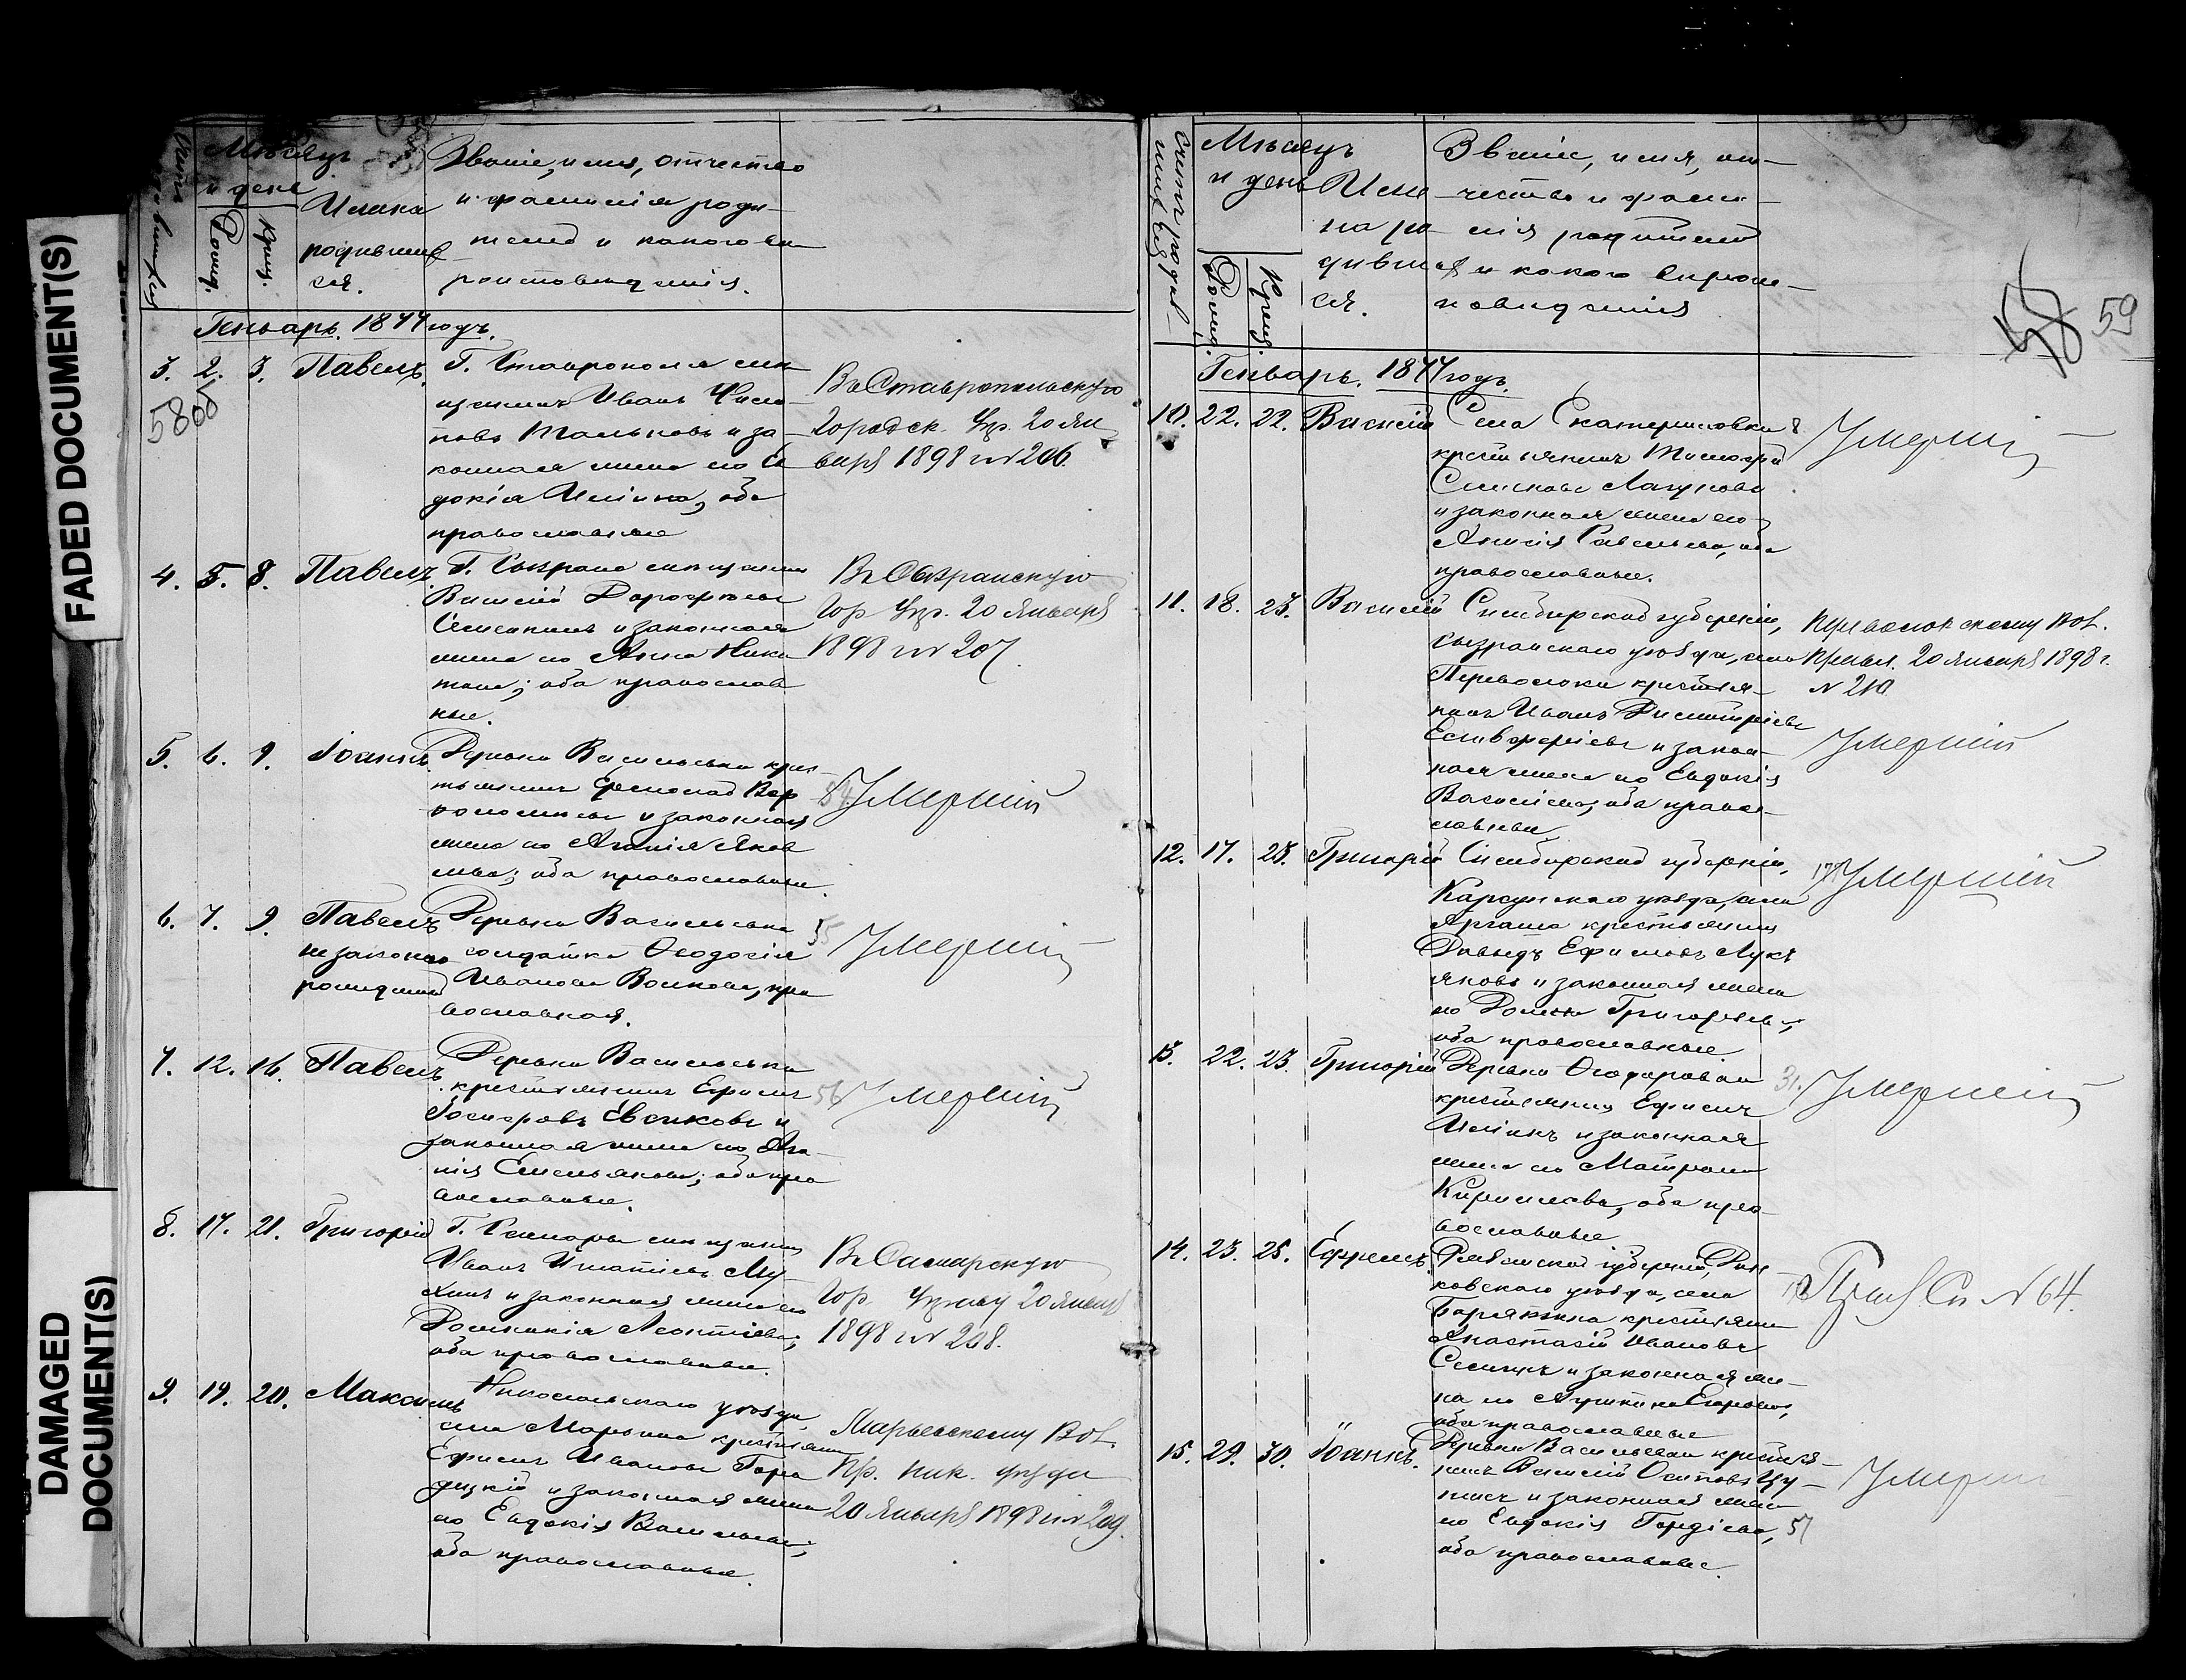 FADED DOCUMENT(S)
DAMAGED
DOCUMENT(S)
Мѣсяцъ
и день
Рожд.
Крещ.
Имена
родивших
ся.
Званіе, имя, отчество
и фамилія роди-
телей и какого вѣ
роисповѣданія.
Генварь. 1877 годъ.
3. 2. 3. Павелъ.
Г. Ставрополя мѣ
щанинъ Иванъ
и за
конная жена его Ев
докія Ильина, оба
православные
Въ Ставропольскую
Городск. Упр. 20 Ян
варя 1898 г № 206.
4. 5. 8. Павелъ.
Г. Сызрана мѣщанинъ
Василій Дорофѣевъ
и законная
жена его Анна Ники
тина; оба православ
ные.
Въ Сызранскую
Гор Упр. 20 Января
1898 г № 207.
5. 6. 9. Іоаннъ.
Деревни Васильевки крес
тьянинъ Вар
ѳоломеевъ и законная
жена его Агапія Яков
лева; оба православные.
54 Умерший
6. 7. 9. Павелъ
незаконно
рожденный
Деревни Васильевки
солдатка Ѳеодосія
Иванова Волкова, пра
вославная.
55 Умерший
7. 12. 16. Павелъ.
Деревни Васильевки
крестьянинъ Ефимъ
и
законная жена его Ага-
пія Емельянова; оба пра
вославные.
56 Умерший
8. 17. 21. Григорій
Г. Самары мѣщанинъ
Иванъ Игнатіевъ Му-
хинъ и законная жена его
Домникія Леонтіева;
оба православные.
Въ Самарскую
Гор Управу 20 Января
1898 г № 208.
9. 19. 20. Максимъ
Николаевскаго уѣзда,
села Марьина крестьянинъ
Ефимъ Ивановъ Горо
децкій и законная жена
его Евдокія Васильева;
оба православные.
Марьевскому Вол.
Пр. Ник. уѣзда
20 Января 1898 г № 209.
58 59
Счетъ родив-
шихся
Мѣсяцъ
и день
Рожд.
Крещ.
Име
на ро
дивших
ся.
Званіе, имя, от-
чество и фами-
лія родителей
и какого вѣроис-
повѣданія
Генварь. 1877 годъ.
10. 22. 22. Василій
Села Екатериновки
крестьянинъ Тимофей
Семеновъ Лагуновъ
и законная жена его
Анисія Савельева, оба
православные.
8 Умерший
11. 18. 23. Василій
Симбирской губерніи,
Сызранскаго уѣзда, села
Переволоки крестья-
нинъ Иванъ Димитріевъ
Елевферіевъ и закон-
ная жена его Евдокія
Васильева, оба право-
славные.
Переволокскому Вол.
Правл. 20 Января 1898 г.
№ 210.
Умерший
12. 17. 23. Григорій
Симбирской губерніи,
Карсунскаго уѣзда, села
Аргаша крестьянинъ
Давыдъ Ефимовъ Лукь
яновъ и законная жена
его Домна Григорьева;
оба православные.
Умерший
13. 22. 23. Григорій
Деревни Ѳедоровки
крестьянинъ Ефимъ
Ильинъ и законная
жена его Матрона
Кириллова, оба пра-
вославные
31. Умерший
14. 23. 25. Ефремъ.
губерніи,
ковскаго уѣзда, села
крестьянинъ
Анастасій Ивановъ
и законная же-
на его Егорьева,
оба православные
Сп № 64.
15. 29. 30. Іоаннъ.
Деревни Васильевки крестья-
нинъ Василій Осиповъ
и законная жена
его Евдокія Гордіева,
оба православные.
57 Умерший